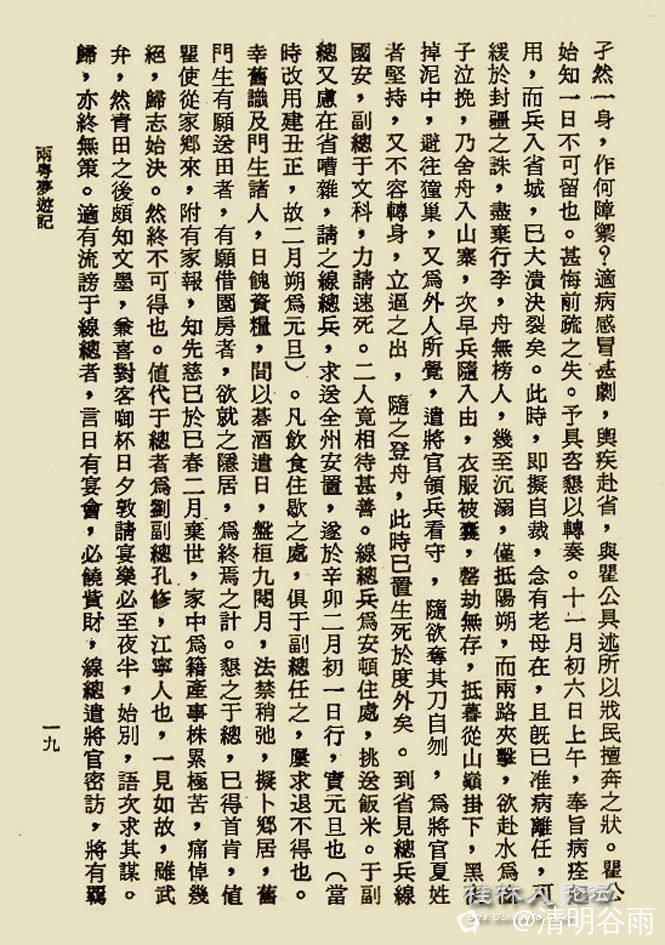 孑然一身，作何障禦？適病感冒甚劇，輿疾赴省，與瞿公具述所以戕民擅奔之狀。瞿公
始知一日不可留也。甚悔前疏之失。予具咨懇以轉奏。十一月初六日上午，奉旨病痊
用，而兵入省城，已大潰決裂矣。此時，即擬自裁，念有老母在，且旣已准病離任，可
緩於封疆之誅，盡棄行李，舟無榜人，幾至沉溺，僅抵陽朔，而兩路夾擊，欲赴水爲
子泣挽，乃舍舟入山寨，次早兵隨入由，衣服被囊，罄劫無存，抵暮從山巔掛下，黑
掉泥中，避往獞巢，又爲外人所覺，遣將官領兵看守，隨欲奪其刀自刎，爲將官夏姓
者堅持，又不容轉身，立逼之出，隨之登舟，此時已置生死於度外矣。到省見總兵線
國安，副總于文科，力請速死。二人竟相待甚善。線總兵爲安頓住處，挑送飯米。于副
總又慮在省嘈雜，請之線總兵，求送全州安置，遂於辛卯二月初一日行，實元旦也（當
時改用建丑正，故二月朔爲元旦）。凡飲食住歇之處，俱于副總任之，屢求退不得也。
幸舊識及門生諸人，日餽資糧，間以碁酒遣日，盤桓九閱月，法禁稍弛，擬卜鄉居，舊
門生有願送田者，有願借園房者，欲就之隱居，爲終焉之計。懇之于總，已得首肯，値
瞿使從家鄉來，附有家報，知先慈已於巳春二月棄世，家中爲籍產事株累極苦，痛悼幾
絕，歸志始決。然終不可得也。値代于總者爲劉副總孔修，江寧人也，一見如故，雖武
弁，然青田之後頗知文墨，兼喜對客啣杯日夕敦請宴樂必至夜半，始別，語次求其謀。
歸，亦終無策。適有流謗于線總者，言日有宴會，必饒貲財，線總遣將官密訪，將有羈
兩粵夢遊記
一九
桂林人论坛
@清明谷雨